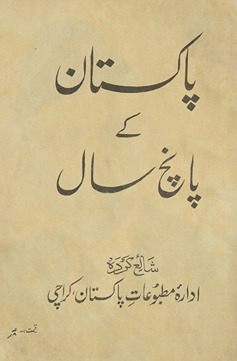 پاکستان
کے
پانچ سال
شائع کردہ
ادارۂ مطبوعاتِ پاکستان، کراچی